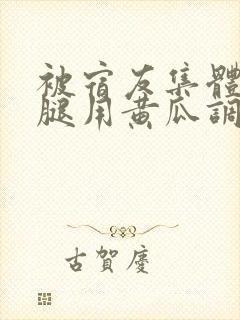 被宿友集體
腿用黃瓜調
古賀慶